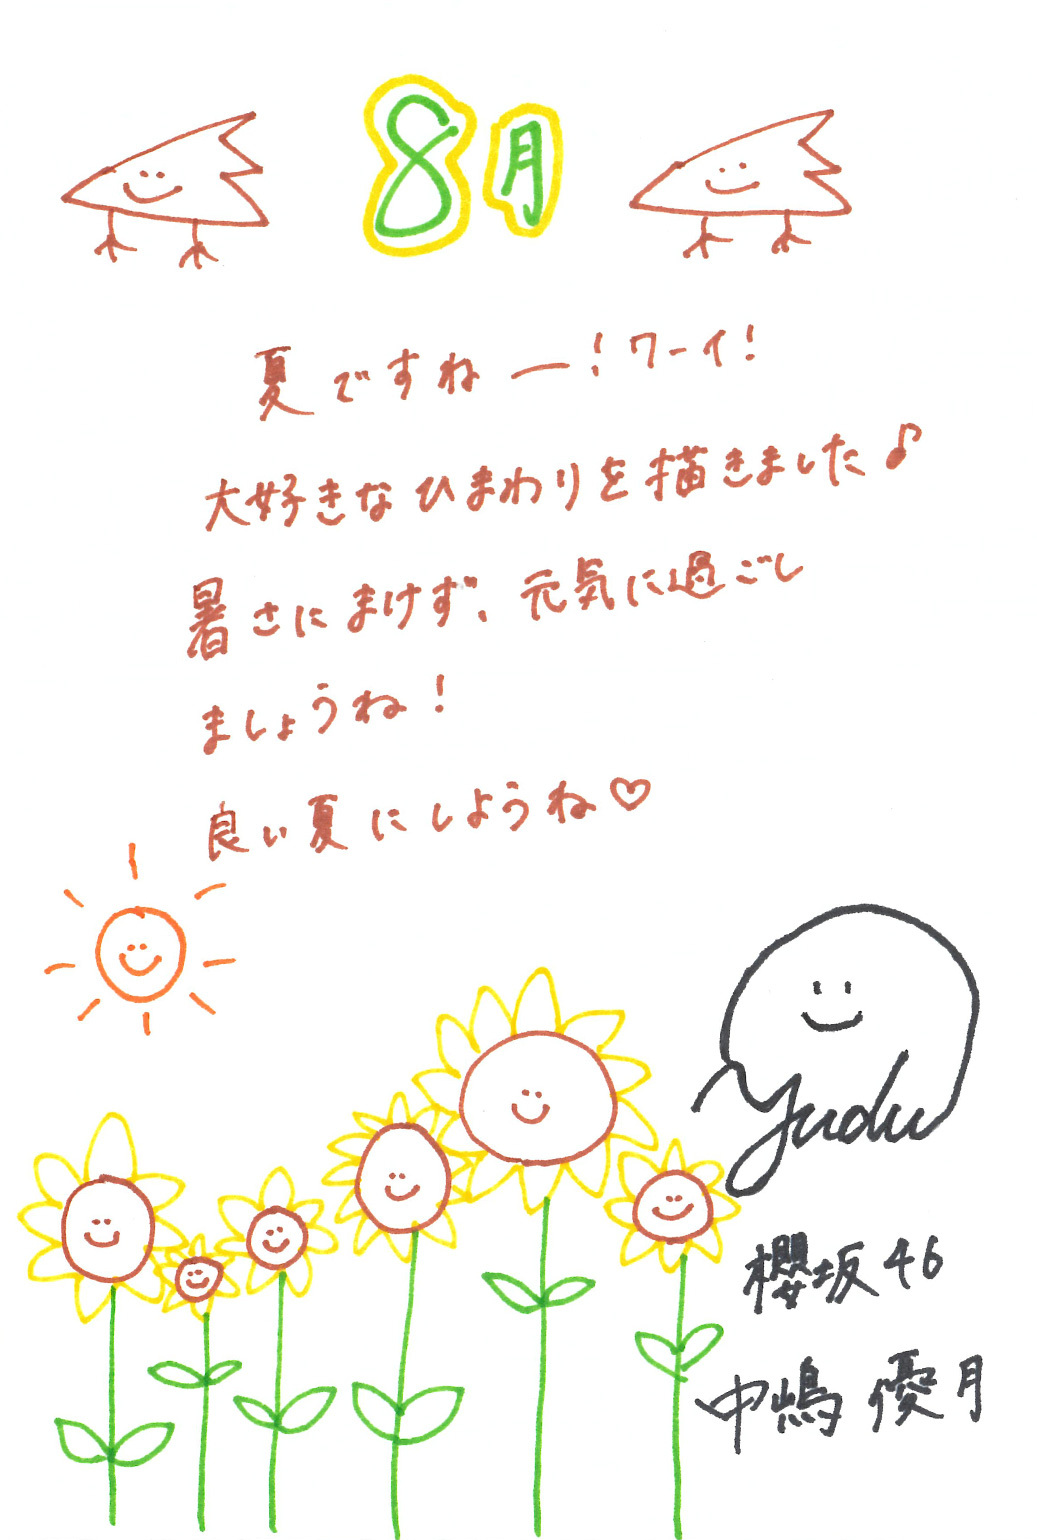 8月
夏ですねー！ワーイ！
大好きなひまわりを描きました♪
暑さにまけず、元気に過ごし
ましょうね！
良い夏にしようね♡
yudu
櫻坂46
中嶋優月